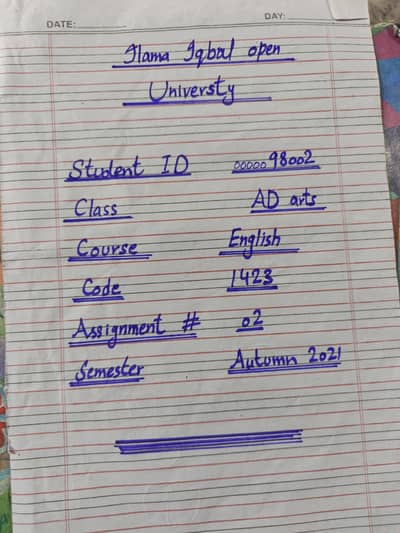 DATE: DAY:
Ilama Iqbal open
Universty
Student ID 0000098002
Class AD arts
Course English
Code 1423
Assignment # 02
Semester Autumn 2021